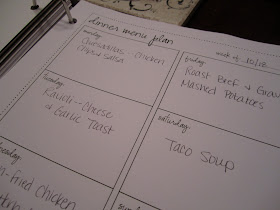 dinner menu plan
week of 10/18
monday:
Quesadillas - Chicken
Chips & Salsa
tuesday:
Ravioli - Cheese
& Garlic Toast
-Fried Chicken
friday:
Roast Beef & Grav
Mashed Potatoes
saturday:
Taco Soup